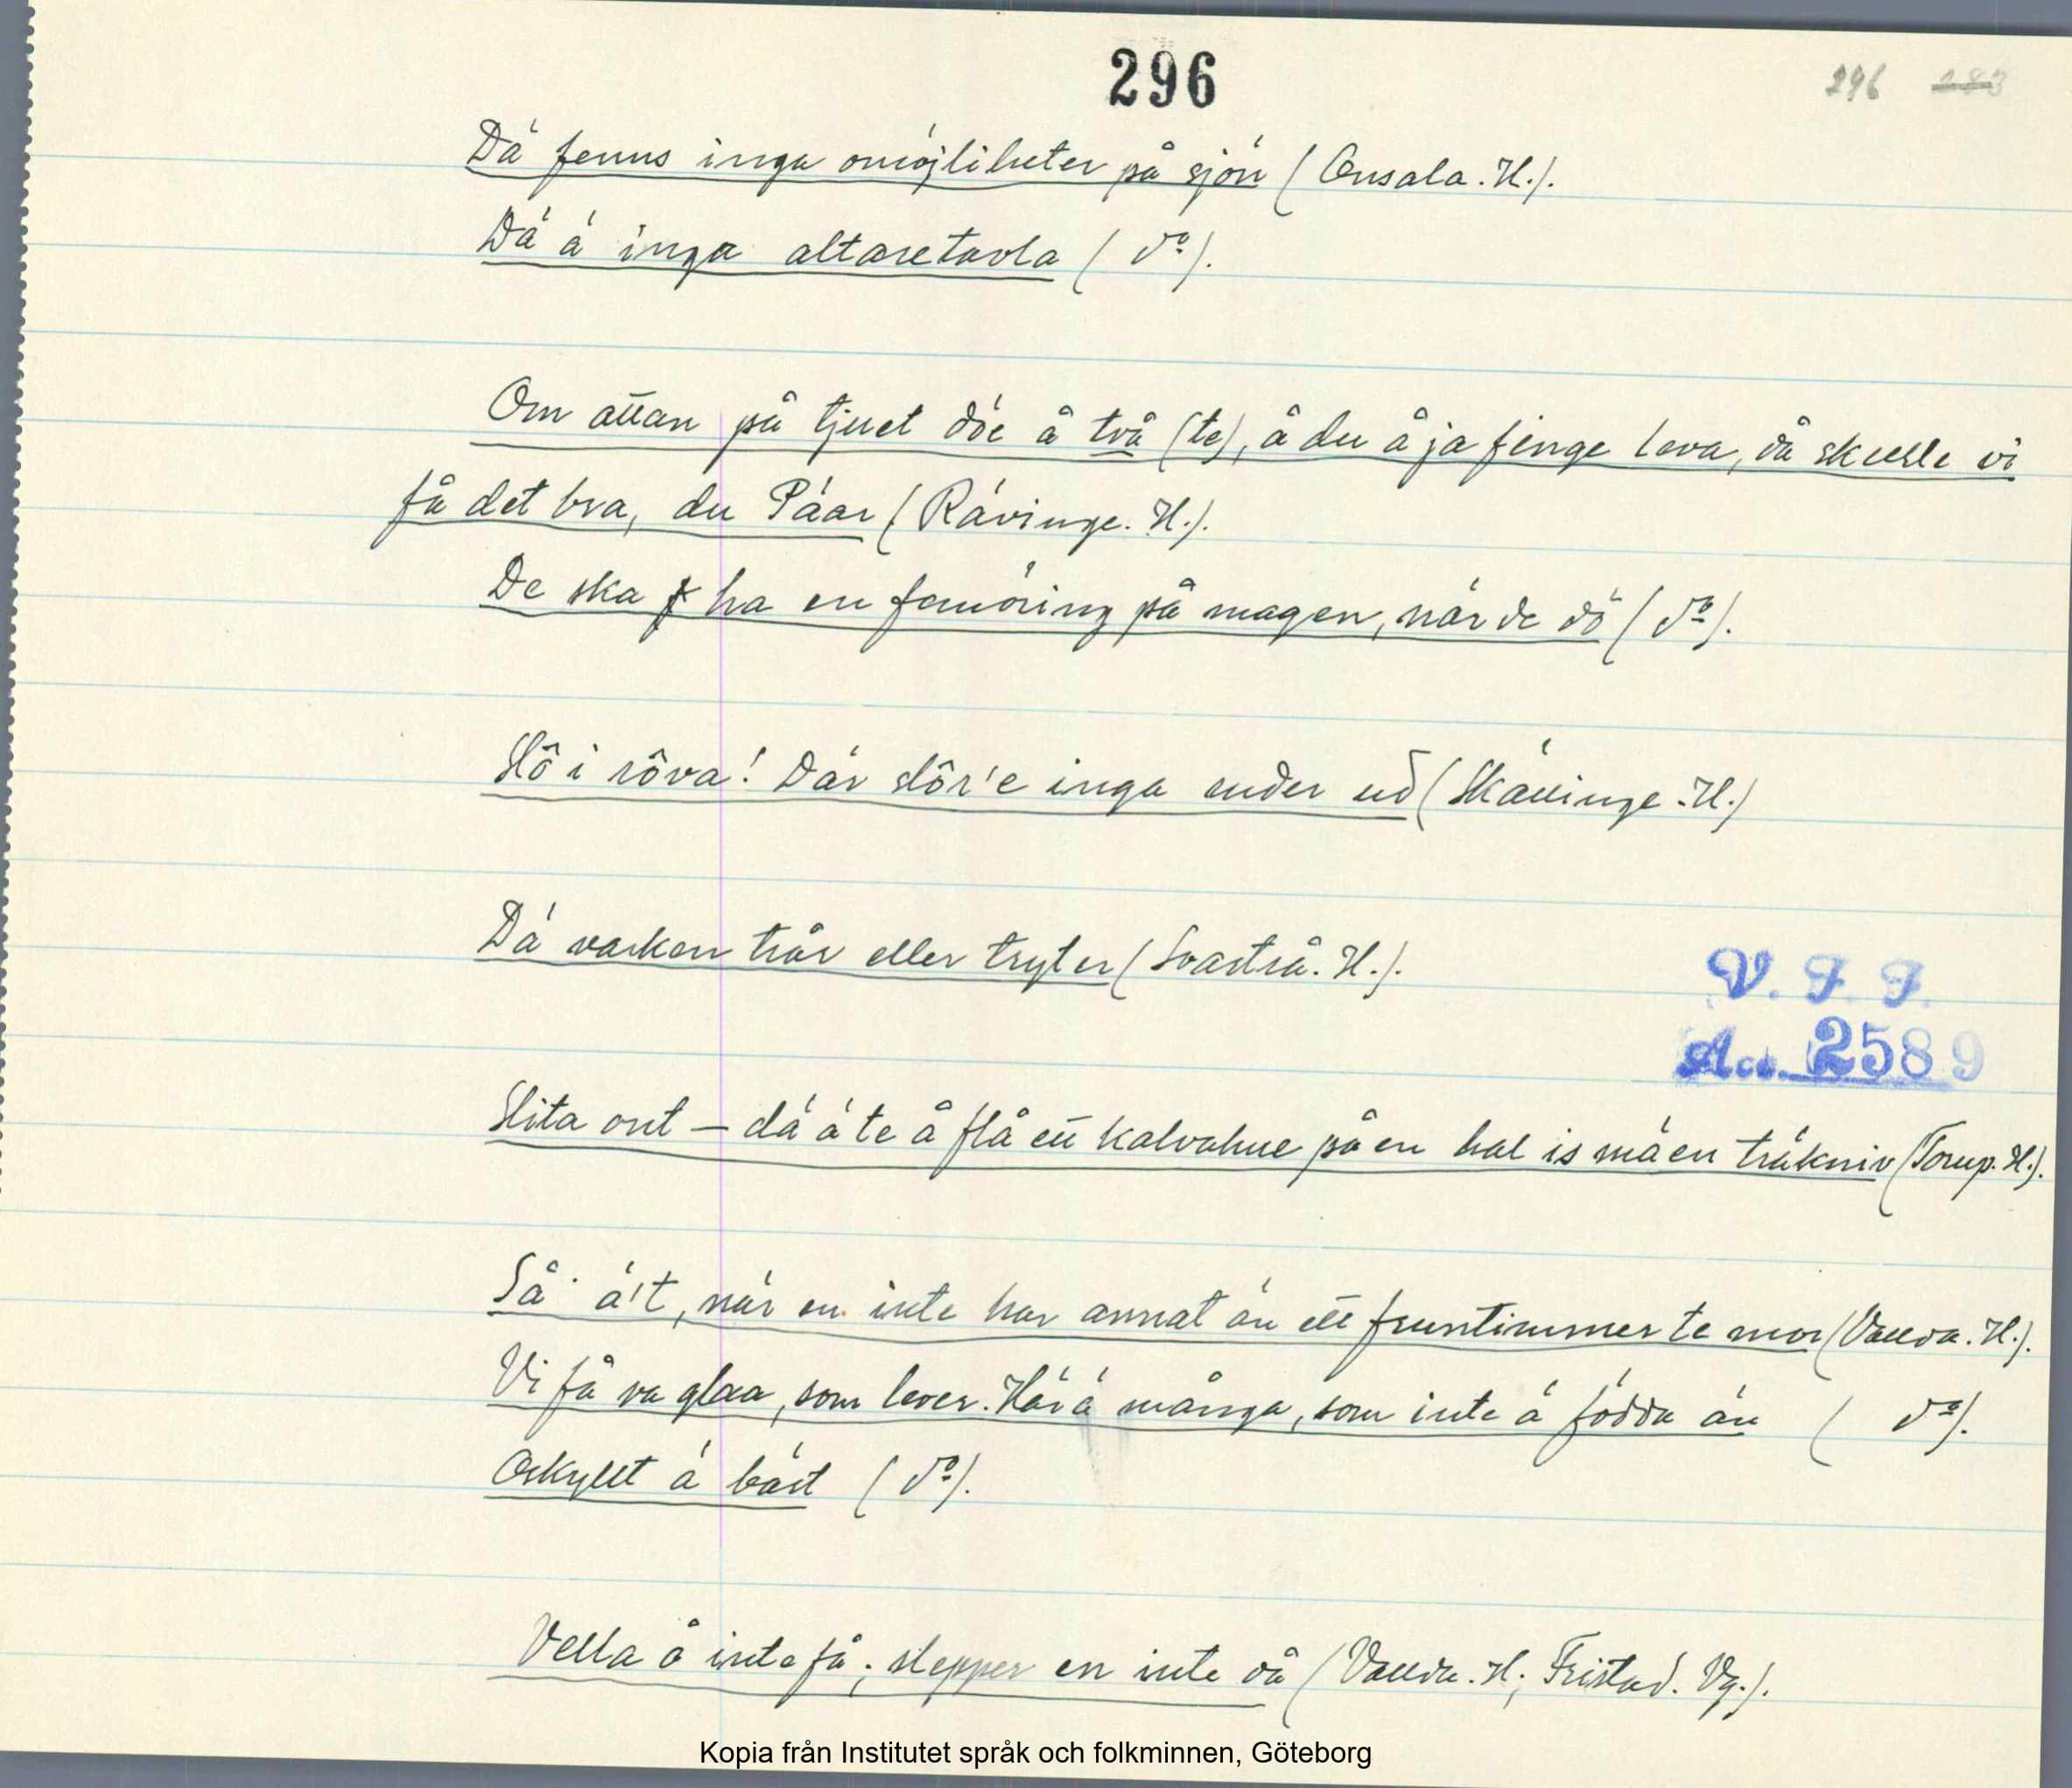 296
296 283
Dä fenns inga omöjliheter på sjön (Onsala. H.).
Dä ä inga altaretavla (do).
Om attan på tjuet döe å två (te), å du å ja finge leva, då skulle vi
få det bra, du Päar (Rävinge. H.).
De ska ha en femöring på magen, när de dö (do).
Slô i rôva! Där slôr'e inga ender ud (Skällinge. H.)
Dä varken trår eller tryter (Svartrå. H.).
Slita ont – dä ä te å flå ett kalvahue på en hal is mä en träkniv (Torup. H.).
Så ä't, när en inte har annat än ett fruntimmer te mor (Valda. H.).
Vi få va glaa, som lever. Här ä många, som inte ä födda än (do).
Oskyllt ä bäst (do).
V. F. F.
Acc. 2589
Vella å inte få; slepper en inte då (Valda. H; Fristad. Vg.).
Kopia från Institutet språk och folkminnen, Göteborg